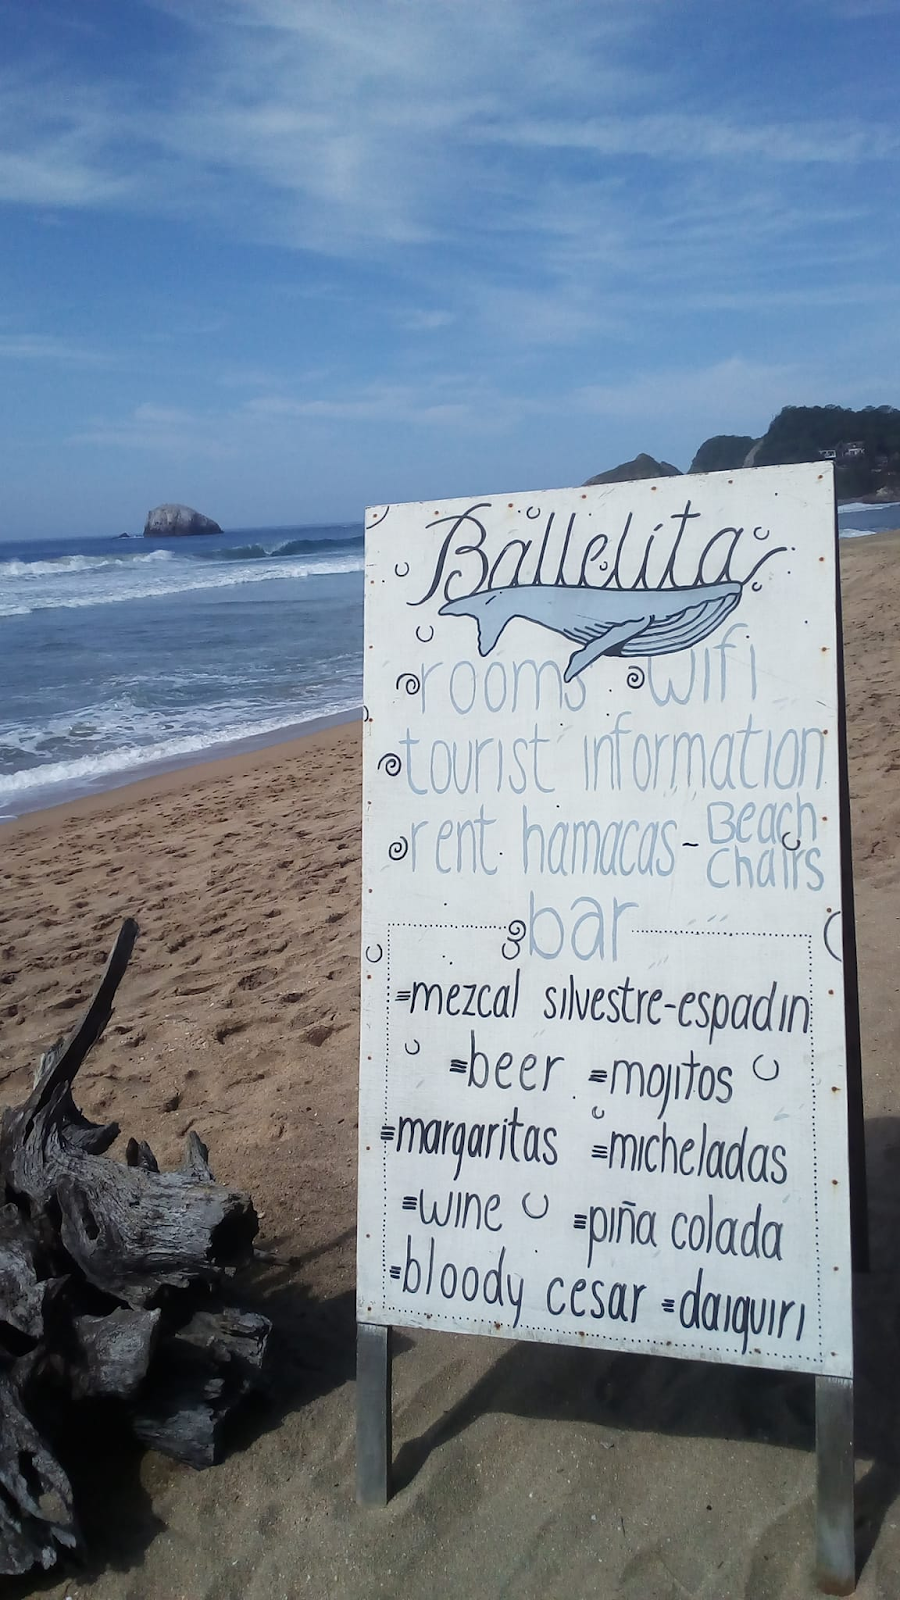 Ballelita
rooms wifi
tourist information
rent hamacas - Beach Chairs
bar
mezcal silvestre-espadin
beer mojitos
margaritas micheladas
wine piña colada
bloody cesar daiquiri